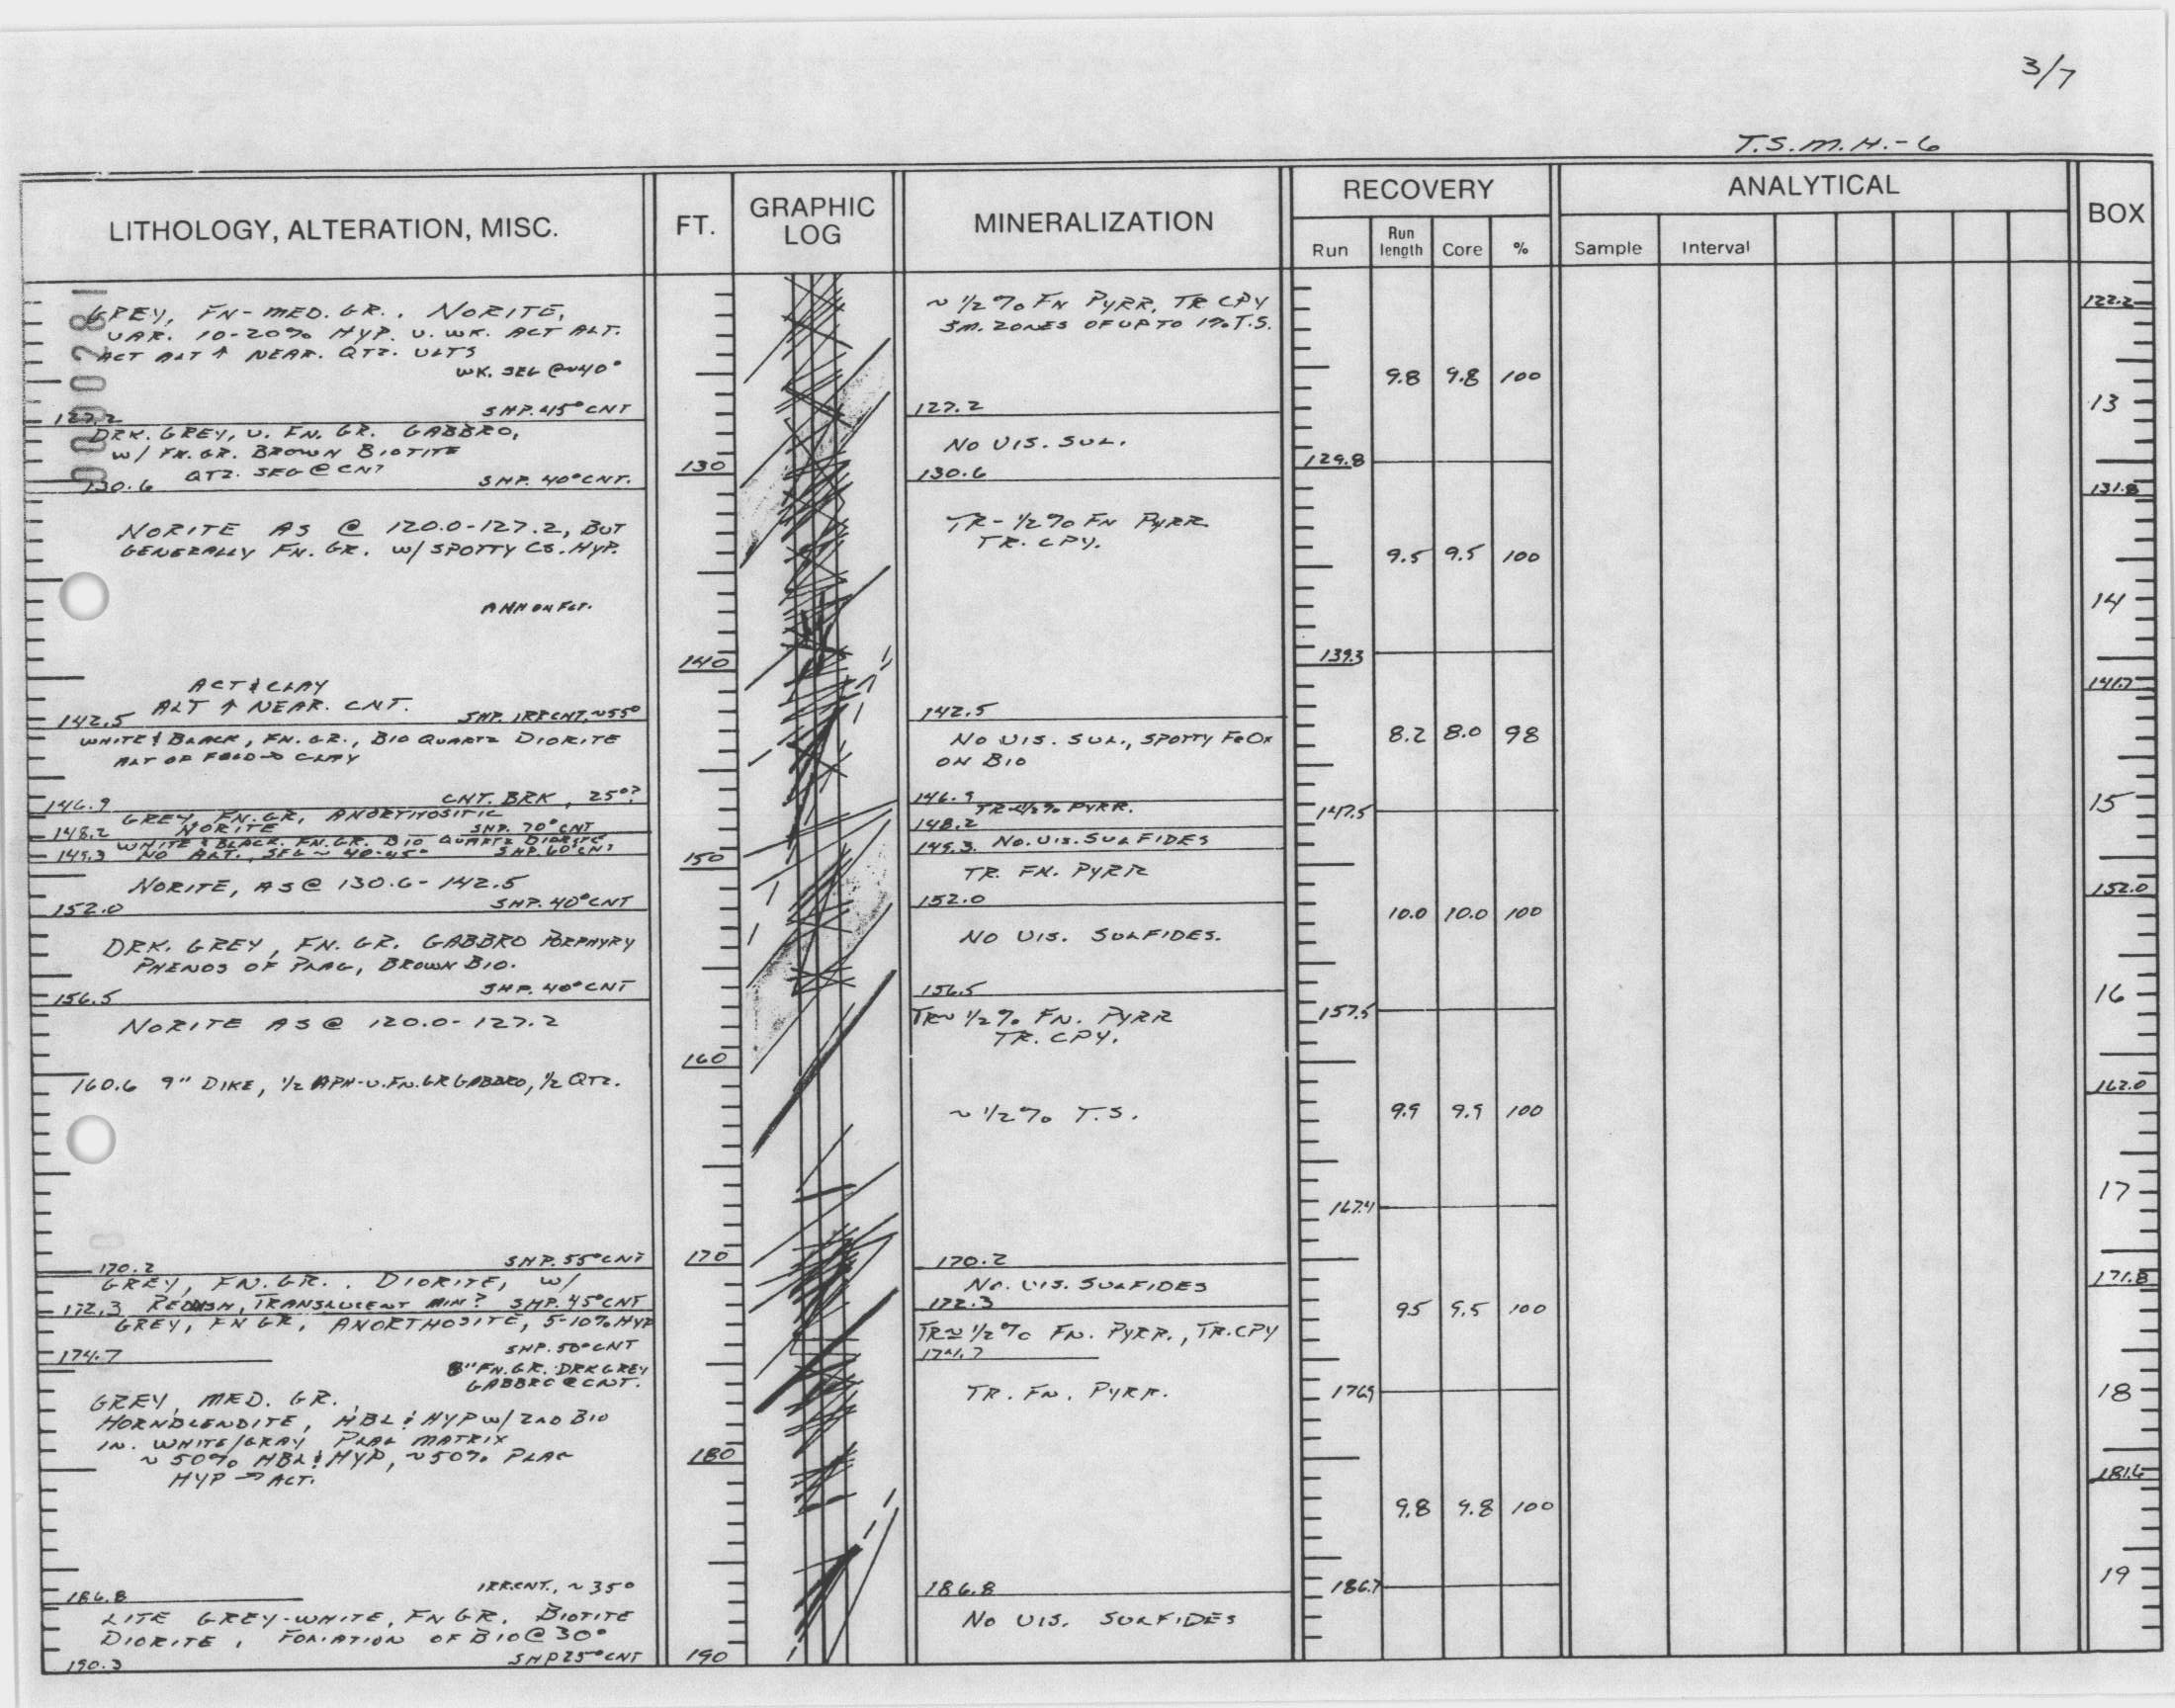 3/7
T.S.M.H.-6
LITHOLOGY, ALTERATION, MISC.
FT.
GRAPHIC
LOG
MINERALIZATION
RECOVERY
Run
Run
length
Core
%
ANALYTICAL
Sample
Interval
BOX
0000281
GREY, FN-MED. GR., NORITE,
VAR. 10-20% HYP. V. WK. ACT ALT.
ACT ALT ↑ NEAR. QTZ. VLTS
WK. SEG @~40°
127.2 SHP. 45° CNT
DRK. GREY, V. FN. GR. GABBRO,
W/ FN. GR. BROWN BIOTITE
QTZ. SEG @ CNT
130.6 SHP. 40° CNT.
NORITE AS @ 120.0-127.2, BUT
GENERALLY FN. GR. W/ SPOTTY CS. HYP.
ACT & CLAY
ALT ↑ NEAR. CNT.
142.5 SHP. IRR CNT. ~55°
WHITE & BLACK, FN. GR., BIO QUARTZ DIORITE
ALT OF FELD → CLAY
146.9 CNT. BRK, 25°?
GREY, FN. GR, ANORTHOSITIC
148.2 NORITE SHP. 70° CNT
WHITE & BLACK. FN. GR. BIO QUARTZ DIORITE
149.3 NO ALT., SEG ~ 40-45° SHP. 60° CNT
NORITE, AS @ 130.6-142.5
152.0 SHP. 40° CNT
DRK. GREY, FN. GR. GABBRO PORPHYRY
PHENOS OF PLAG, BROWN BIO.
156.5 SHP. 40° CNT
NORITE AS @ 120.0-127.2
160.6 9" DIKE, 1/2 APH-V.FN.GR GABBRO, 1/2 QTZ.
170.2 SHP. 55° CNT
GREY, FN. GR.. DIORITE, W/
172.3 REDISH, TRANSLUCENT MIN? SHP. 45° CNT
GREY, FN GR, ANORTHOSITE, 5-10% HYP
174.7 SHP. 50° CNT
8" FN. GR. DRK GREY
GABBRO @ CNT.
GREY, MED. GR.
HORNBLENDITE, HBL & HYP W/ 2ND BIO
IN. WHITE/GRAY PLAG MATRIX
~50% HBL & HYP, ~50% PLAG
HYP → ACT.
186.8 IRR.CNT., ~35°
LITE GREY-WHITE, FN GR. BIOTITE
DIORITE, FOLIATION OF BIO @ 30°
190.3 SHP 25° CNT
130
140
150
160
170
180
190
~1/2% FN PYRR, TR CPY
SM. ZONES OF UP TO 1% T.S.
127.2
NO VIS. SUL.
130.6
TR-1/2% FN PYRR
TR. CPY.
142.5
NO VIS. SUL., SPOTTY FeOx
ON BIO
146.9
TR-1/2% PYRR.
148.2
149.3 NO. VIS. SULFIDES
TR. FN. PYRR
152.0
NO VIS. SULFIDES.
156.5
TR~1/2% FN. PYRR
TR. CPY.
~1/2% T.S.
170.2
NO. VIS. SULFIDES
172.3
TR~1/2% FN. PYRR., TR.CPY
174.7
TR. FN. PYRR.
186.8
NO VIS. SULFIDES
9.8 9.8 100
129.8
9.5 9.5 100
139.3
8.2 8.0 98
147.5
10.0 10.0 100
157.5
9.9 9.9 100
167.4
95 9.5 100
176.9
9.8 9.8 100
186.7
122.2
13
131.8
14
141.7
15
152.0
16
162.0
17
171.8
18
181.6
19